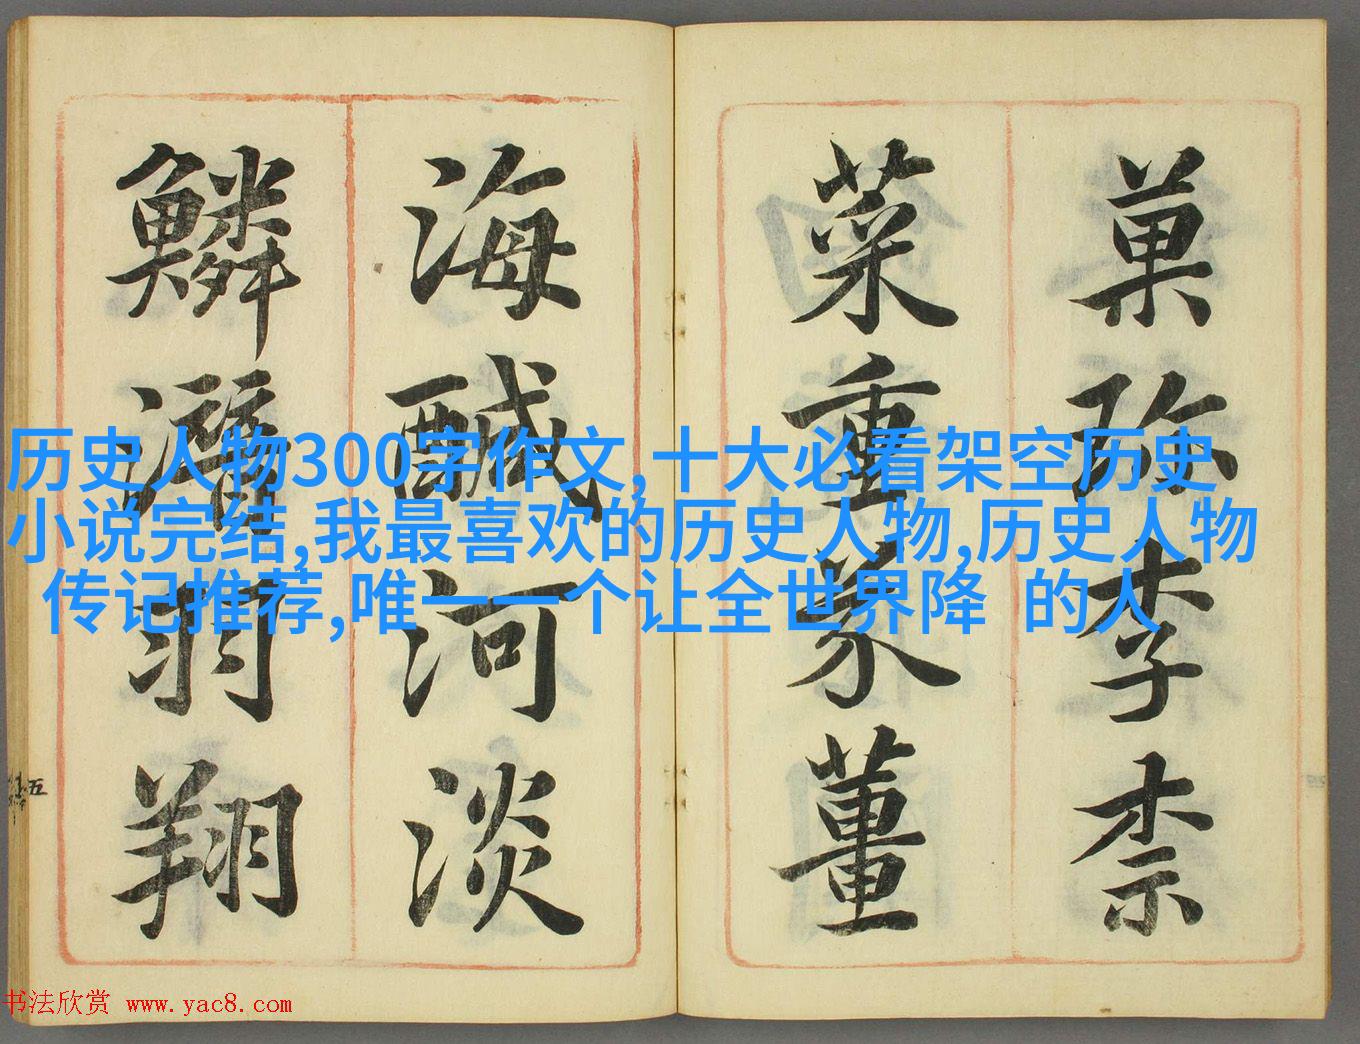 菓珎李柰
菜重芥薑
海醎河淡
鱗潛羽翔
五
历史人物300字作文,十大必看架空历史
小说完结,我最喜欢的历史人物,历史人物
传记推荐,唯一一个让全世界降 的人
书法欣赏 www.yac8.com